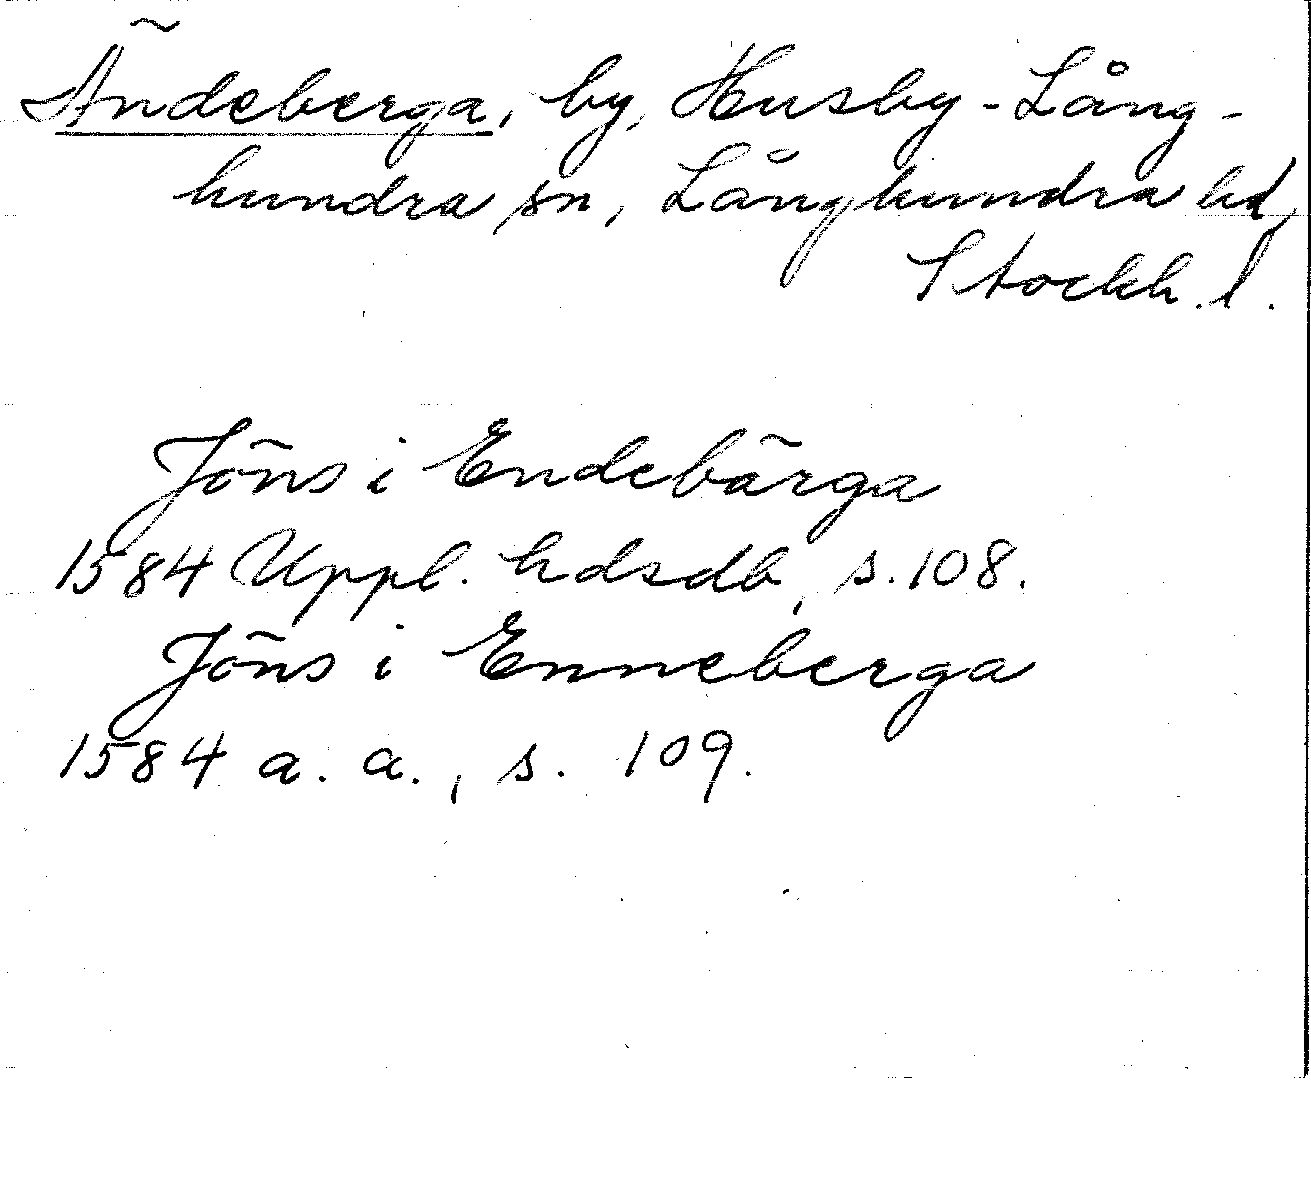 Ändeberga, by, Husby-Lång-
hundra sn, Långhundra hd,
Stockh. l.
Jöns i Endebärga
1584 Uppl. hdsdb, s. 108.
Jöns i Enneberga
1584 a. a., s. 109.